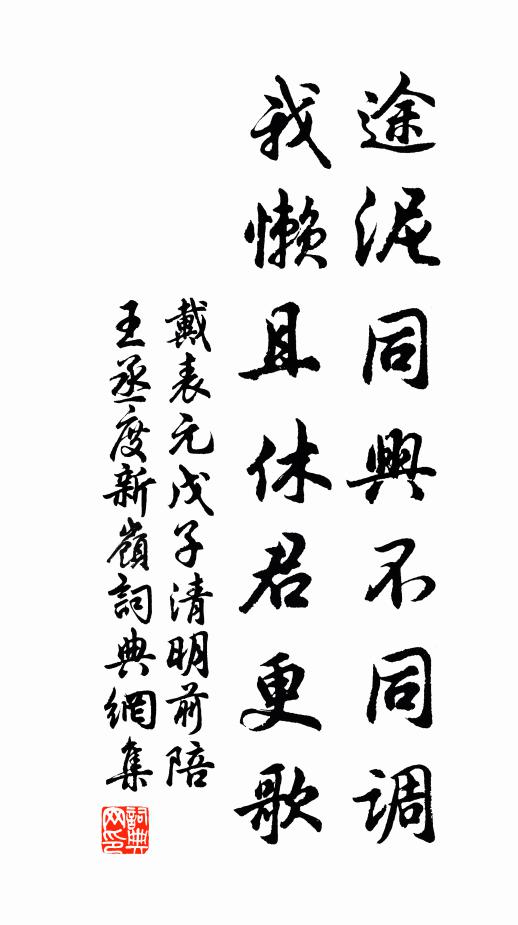 途泥同興不同调
我懒且休君更歌
戴表元戊子清明前陪
王丞度新嶺詞典網集
詞典
网印